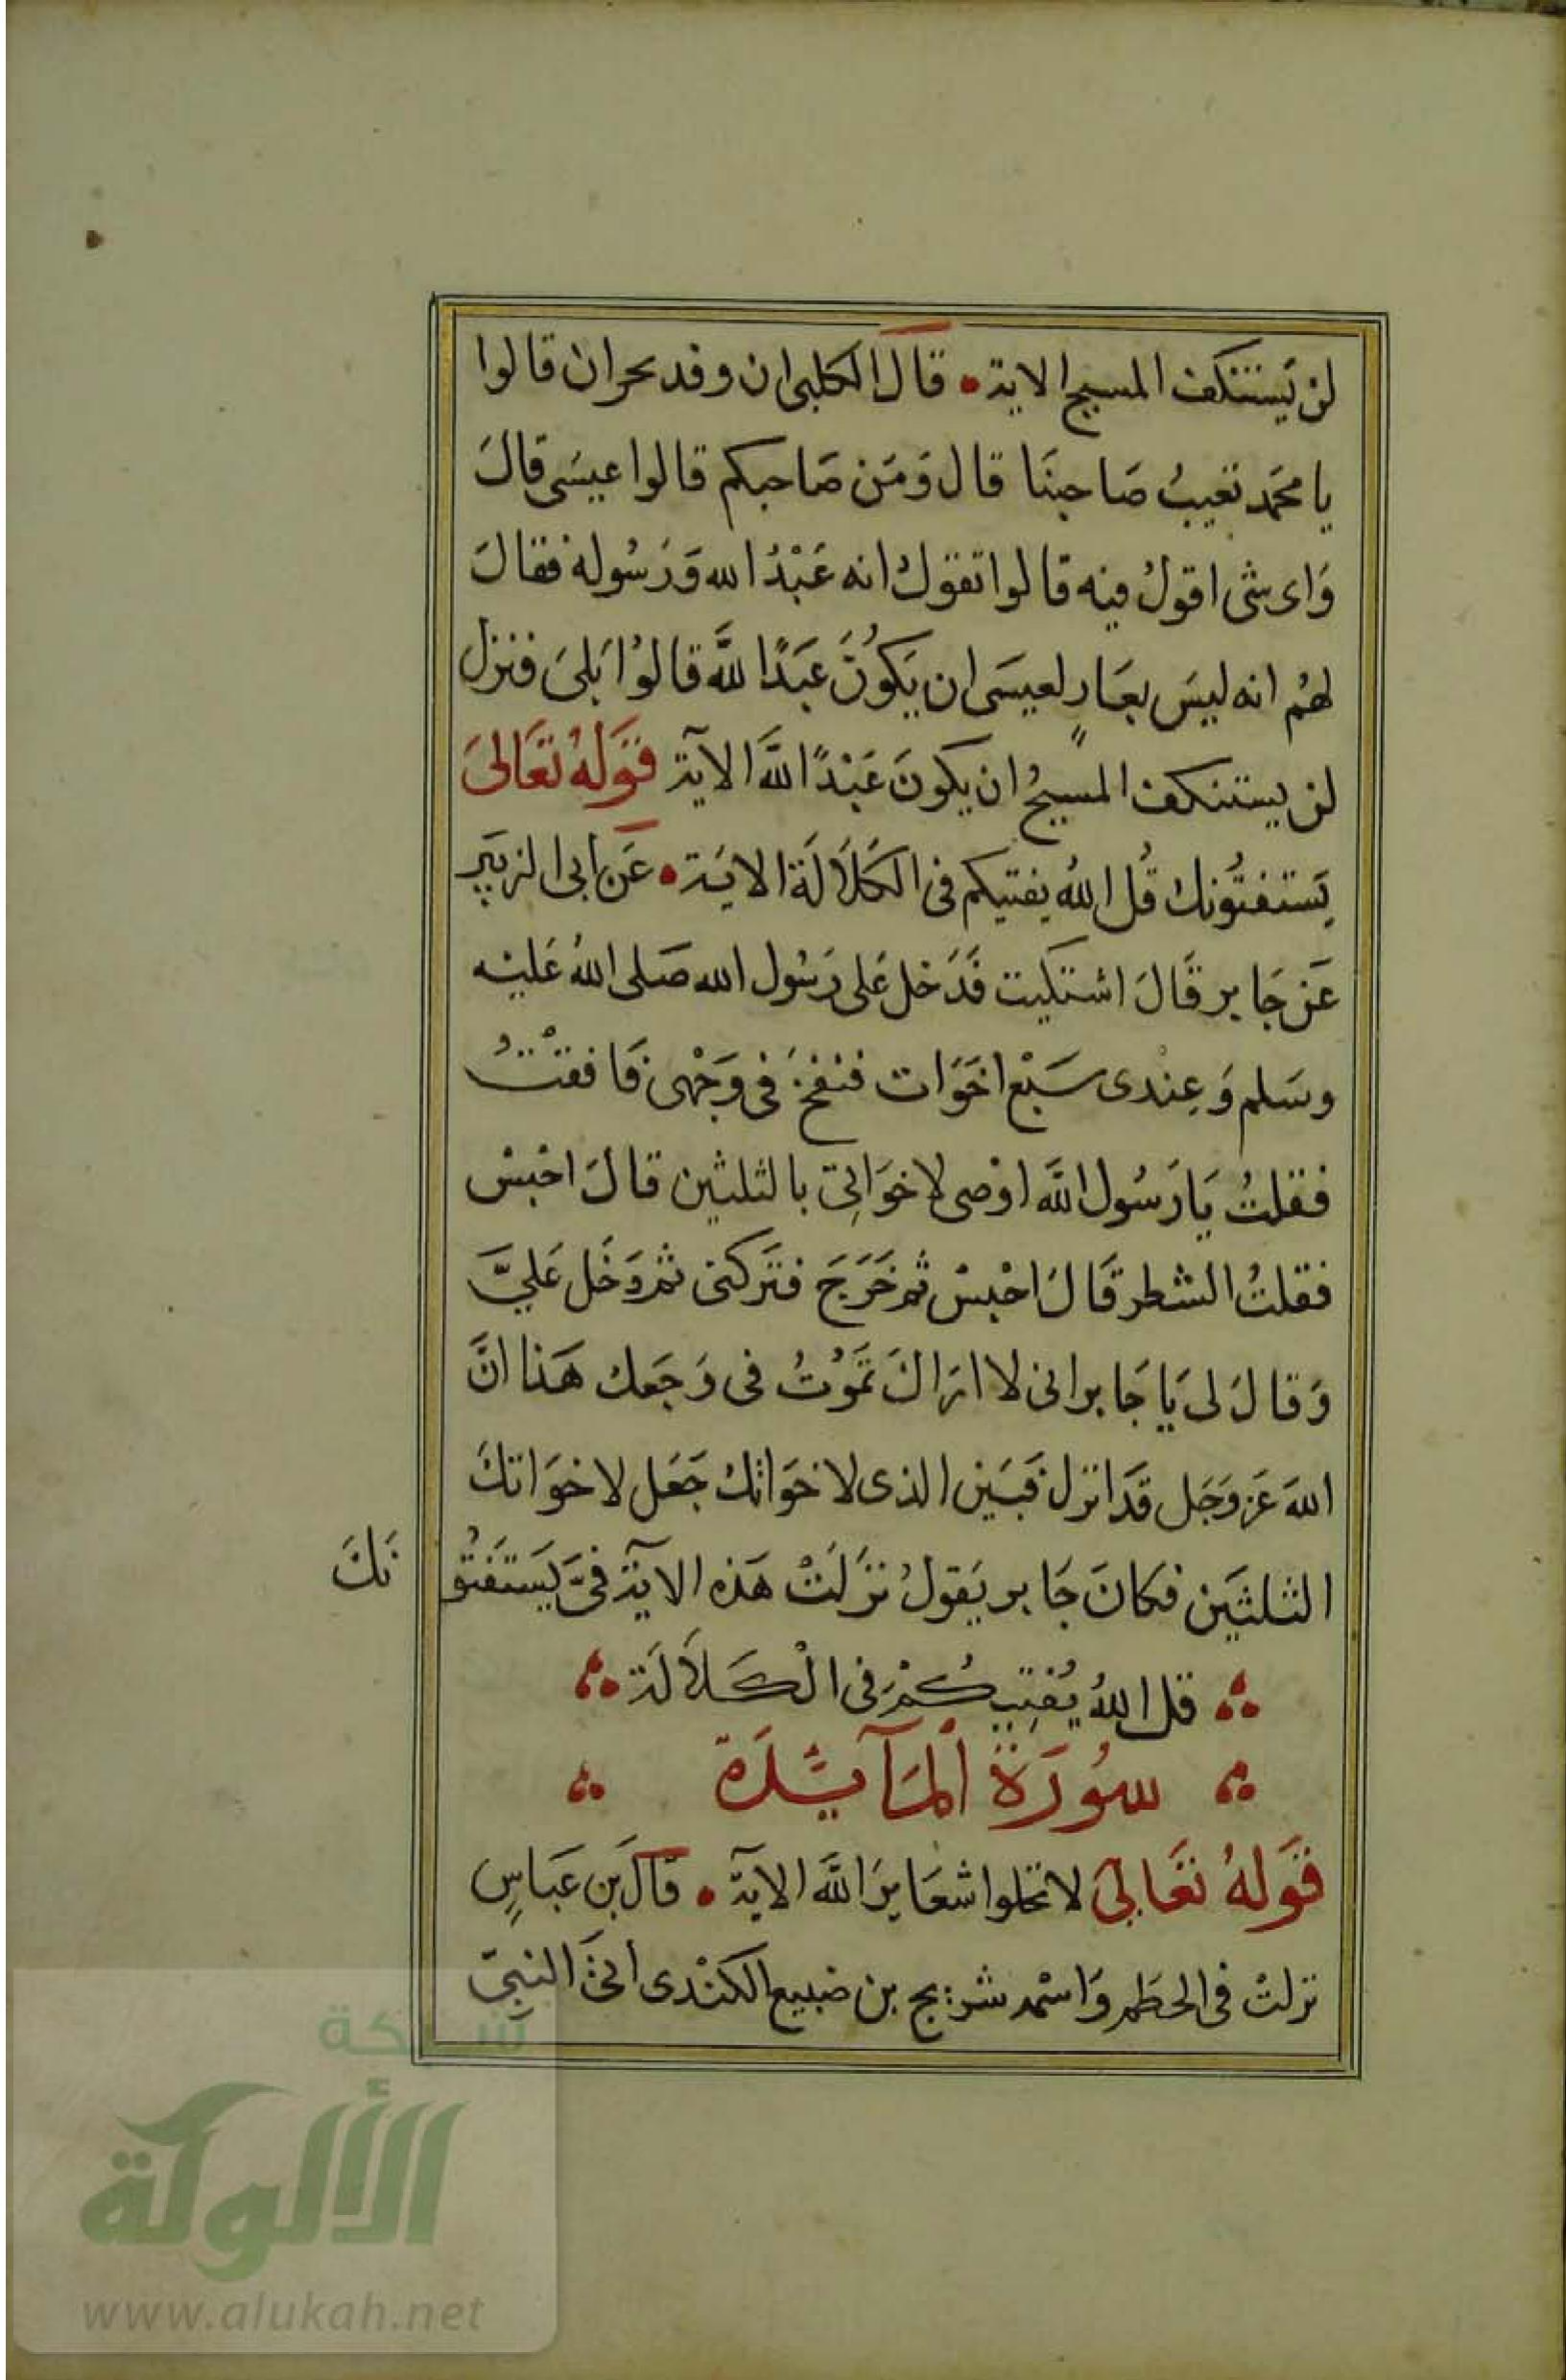 لن يَستنكف المسيح الاية • قَالَ الكلبى ان وفد بحران قالوا
يا محمَد تعَيبُ صَاحِبنَا قال وَمَن صَاحبكم قالوا عيسَى قالَ
وَاى شئ اقولُ فيه قالوا تقولُ انه عَبْدُ الله وَرَسُوله فقالَ
لهُم انه ليسَ بعَارٍ لعيسَى ان يَكوُنَ عَبَدًا للَّه قالوُا بَلىَ فنزل
لن يستنكف المسيحُ ان يكونَ عَبْدًا للَّه الآية قَولهُ تعَالىَ
يَستفتُونكَ قُل اللهُ يفتيكم فى الكَلَالَة الاية • عَن ابى الزبَير
عَن جَابر قَالَ اشتكيت فَدَخل عَلى رَسُول الله صَلى اللهُ عَليْه
وسَلم وَعِنْدى سَبْع اخَوَات فنفخَ فى وَجْهى فَافقتُ
فقلتُ يَا رَسُول اللَّه اوْصى لاخوَاتِى بالثلثين قالَ احْبسْ
فقلتُ الشطر قَالَ احْبسْ ثم خَرَجَ فتَركنى ثم دَخَل عَليَّ
وَقالَ لى يَا جَابر انى لا ارَاكَ تَمَوُتُ فى وَجَعك هَذا انَّ
اللهَ عَز وَجَل قَدَ انزل فَبَيَن الذى لاخوَاتكَ جَعَل لاخوَاتكَ
الثلثَين فكانَ جَابر يَقولُ نَزَلَتْ هَذه الآية فىَّ يَستَفتُو نَكَ
قل اللهُ يُفتِيكُمْ فى الْكَلَالَة
سُورَةُ الْمَآئِدَة
قَولهُ تعَالىَ لا تحلوا شعَايرَ اللَّه الآية • قَالَ بن عَبَاسٍ
نزلتْ فى الحطَم وَاسْمه شريح بن ضبيع الكنْدى أتىَ النبِىّ
شبكة
الألوكة
www.alukah.net